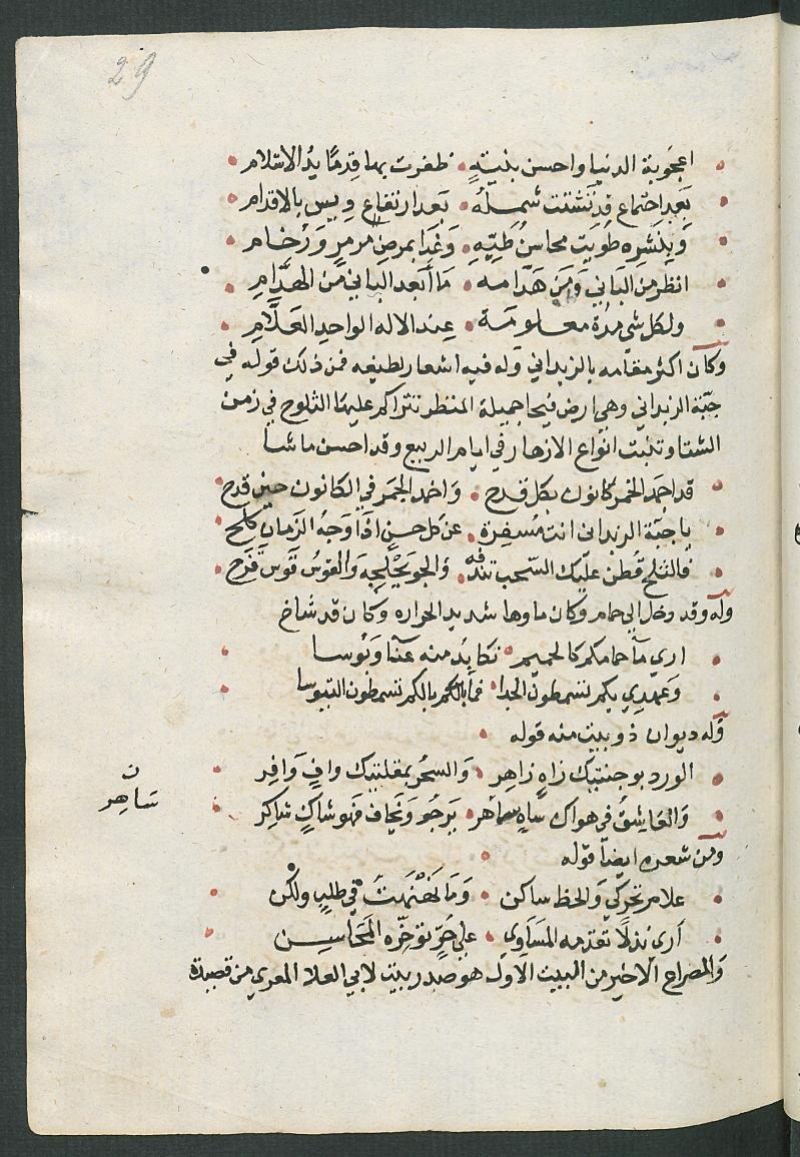 29
اعجوبة الدنيا واحسن بنية • ظفرت بها قدمًا يدُ الاسلام •
بَعد اجتماع قد تشتت شملهُ • بَعد ارتفاع دِيسَ بالاقدام •
وَبِنَشره طُوِيَت محاسنُ طَيِّهِ • وَغَدَا بمرصٍ مرمرٍ وَرُخام •
انظر من البَاني وَمَن هَدّامه • مَا أبعد الباني من الهدَّامِ •
ولكل شي مدة معلومة • عِند الاله الواحد العَلَّامِ •
وكان اكثر مقامه بالزبداني وله فيه اشعار لطيفه فمن ذلك قوله في
جبّة الزبداني وهي ارض فيحا جميلة المنظر تتراكم عليها الثلوج في زمن
الشتا وتنبت انواع الازهار في ايام الربيع وقد احسن ما شا
قد اجمد الخمر كانون بكل قدح • واخمد الجمر في الكانون حين قدح •
يا جبّة الزبداني انت مُسفِرة • عن كل حسنٍ اذَا وَجهُ الزمان كلح •
فالثلج قُطن عليك السّحب تندفه • والجو يَحْلجه وَالقوسُ قَوس قزح •
وله وقد دخل الى حمام وكان ماوها شديد الحراره وكان قد شاخ
اري ما حمامكم كالحميم • نكابِد منه عَنَا وَبُوسا •
وَعهدي بكم تسمطون الجدا • فما بالكم بالكم تسمطون التيوسا •
وَله ديوان ذوبيت منه قوله •
الورد بوجنتيك زاهٍ زاهر • وَالسحر بمقلتيك وافٍ وَافِر •
وَالعَاشقُ في هواك ساهٍ ساهر • يَرجُو وَيَخاف فهو شاكٍ شاكِر •
ن
سَاهِر
ومن شعره ايضا قوله •
علام تحركي وَالحظ ساكن • وَمَا نَهْنَهتُ في طلبٍ ولكن •
أرى نذلًا تقدّمه المَسَاوي • على حُرٍّ تؤخّره المَحَاسِن •
وَالمصراع الاخير من البيت الاول هو صدر بيت لابي العلا المعري من قصيدة